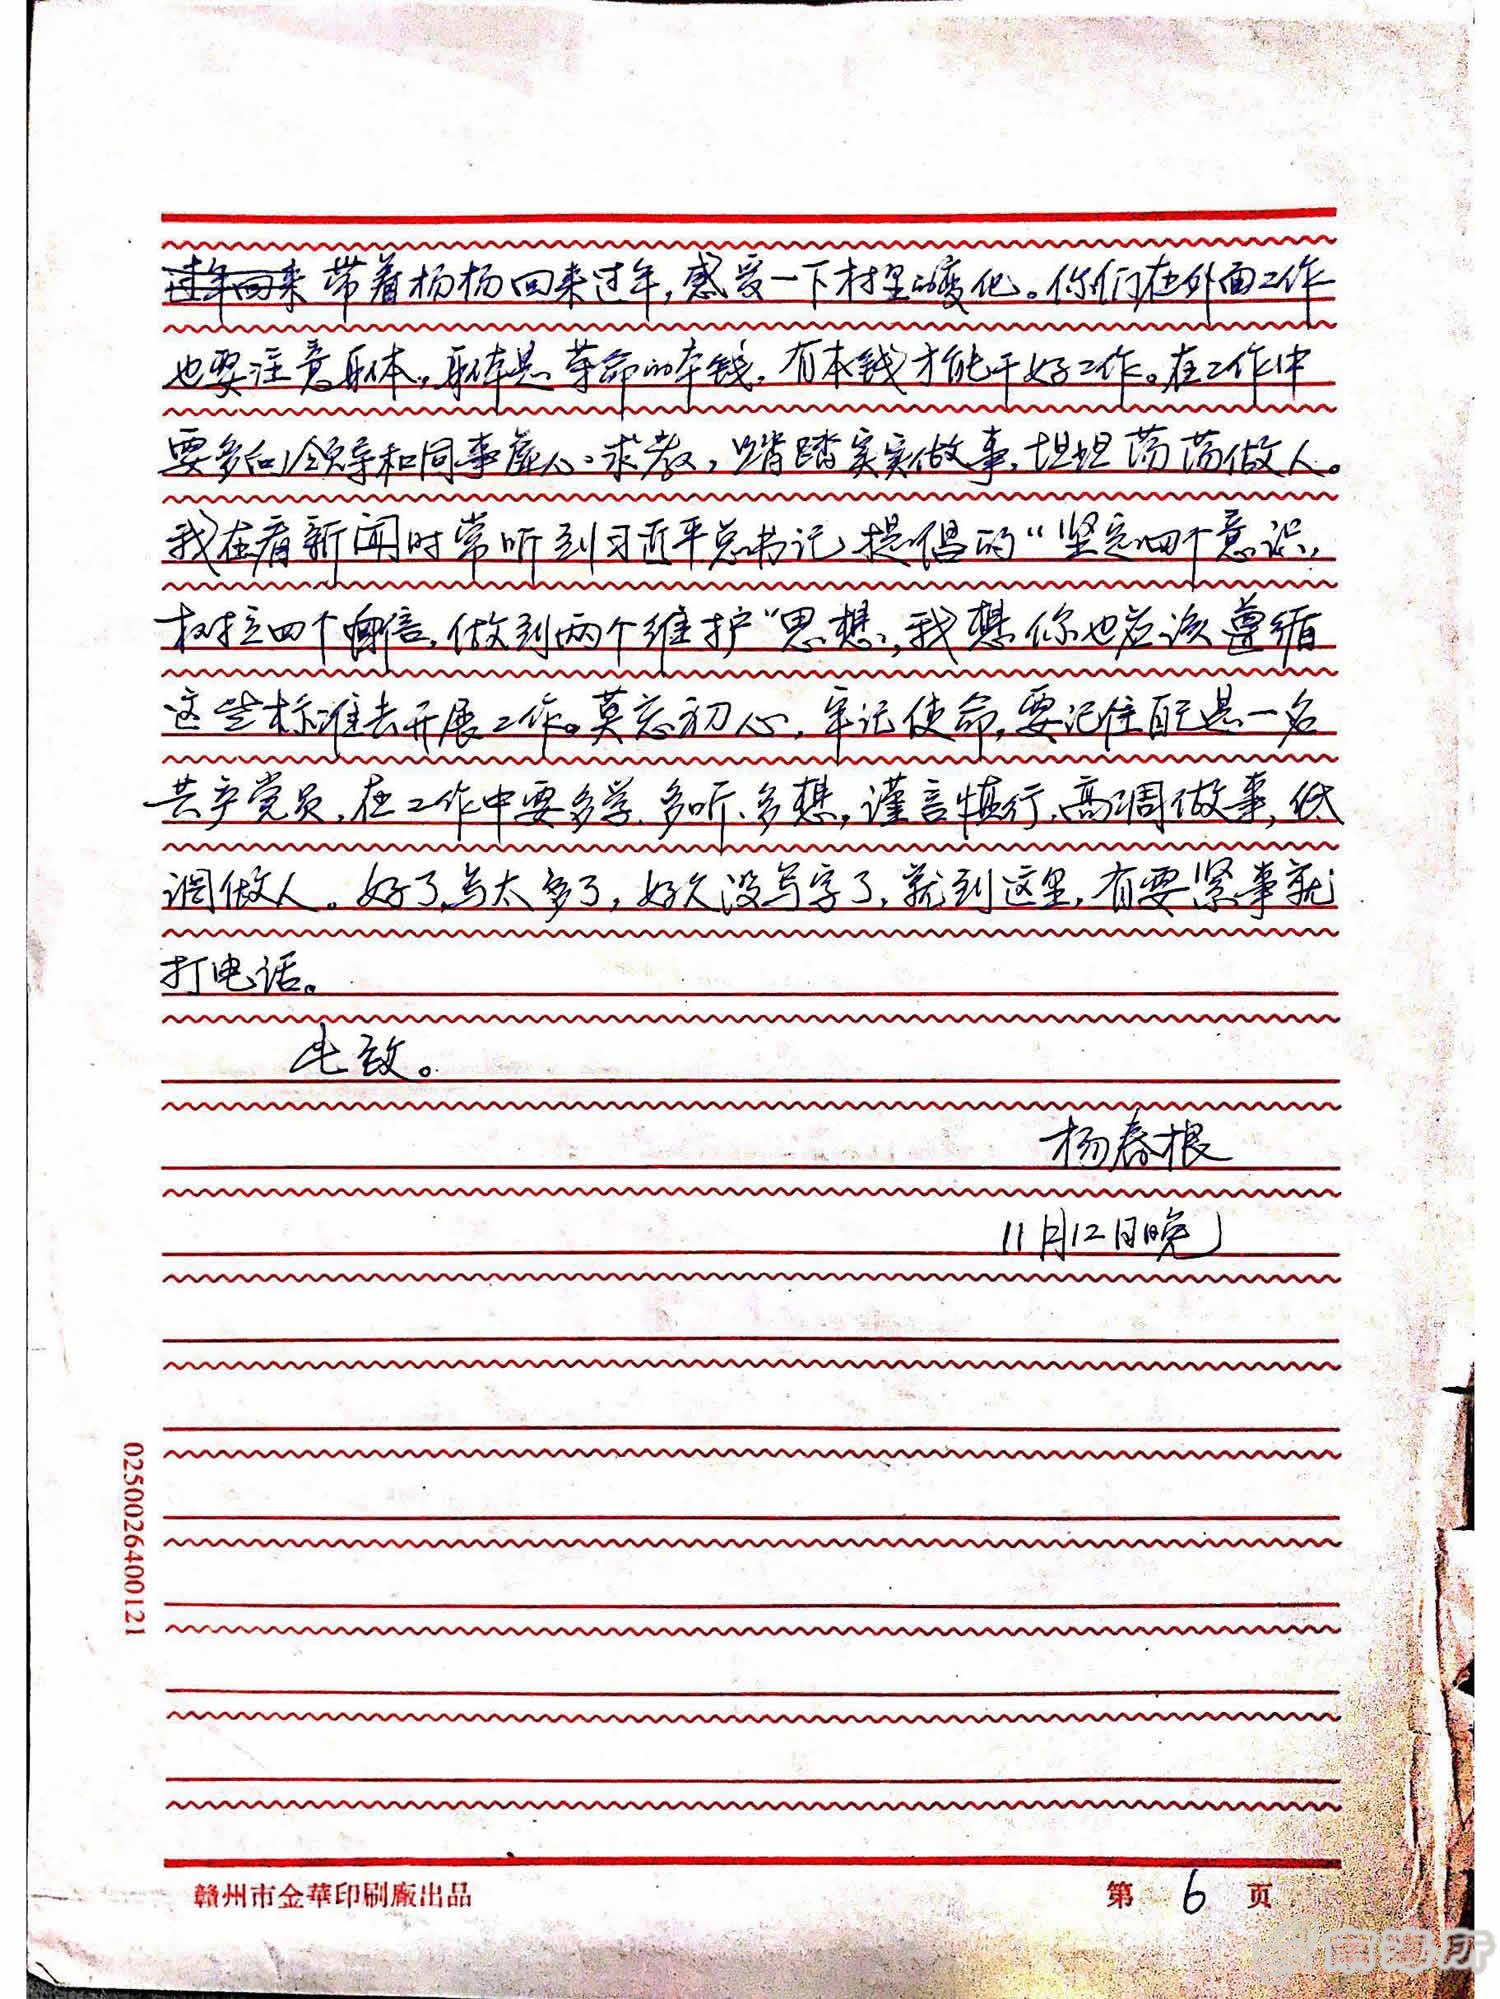 过年回来带着杨杨回来过年,感受一下村里的变化。你们在外面工作
也要注意身体,身体是革命的本钱,有本钱才能干好工作。在工作中
要多向领导和同事虚心求教,踏踏实实做事,坦坦荡荡做人。
我在看新闻时常听到习近平总书记提倡的“坚定四个意识,
树立四个自信,做到两个维护”思想,我想你也应该遵循
这些标准去开展工作。莫忘初心,牢记使命,要记住自己是一名
共产党员,在工作中要多学、多听、多想,谨言慎行,高调做事,低
调做人。好了,写太多了,好久没写字了,就到这里,有要紧事就
打电话。
此致。
杨春根
11月12日晚
0250026400121
赣州市金華印刷廠出品
第 6 页